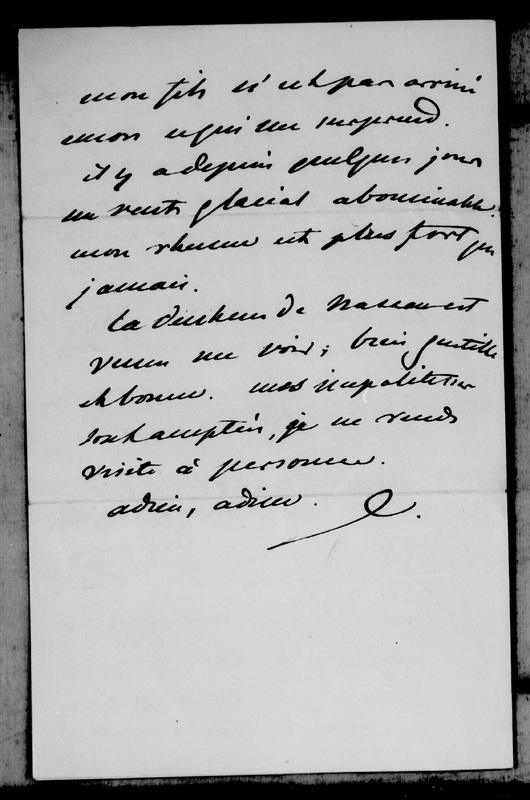 mon fils n'est pas arrivé
encore ce qui me surprend.
il y a depuis quelques jours
un vent glacial abominable.
mon rhume est plus fort que
jamais.
La duchesse de Nassau est
venue me voir; bien gentille
et bonne. mes impolitesses
sont acceptées, je ne rends
visite à personne.
adieu, adieu.